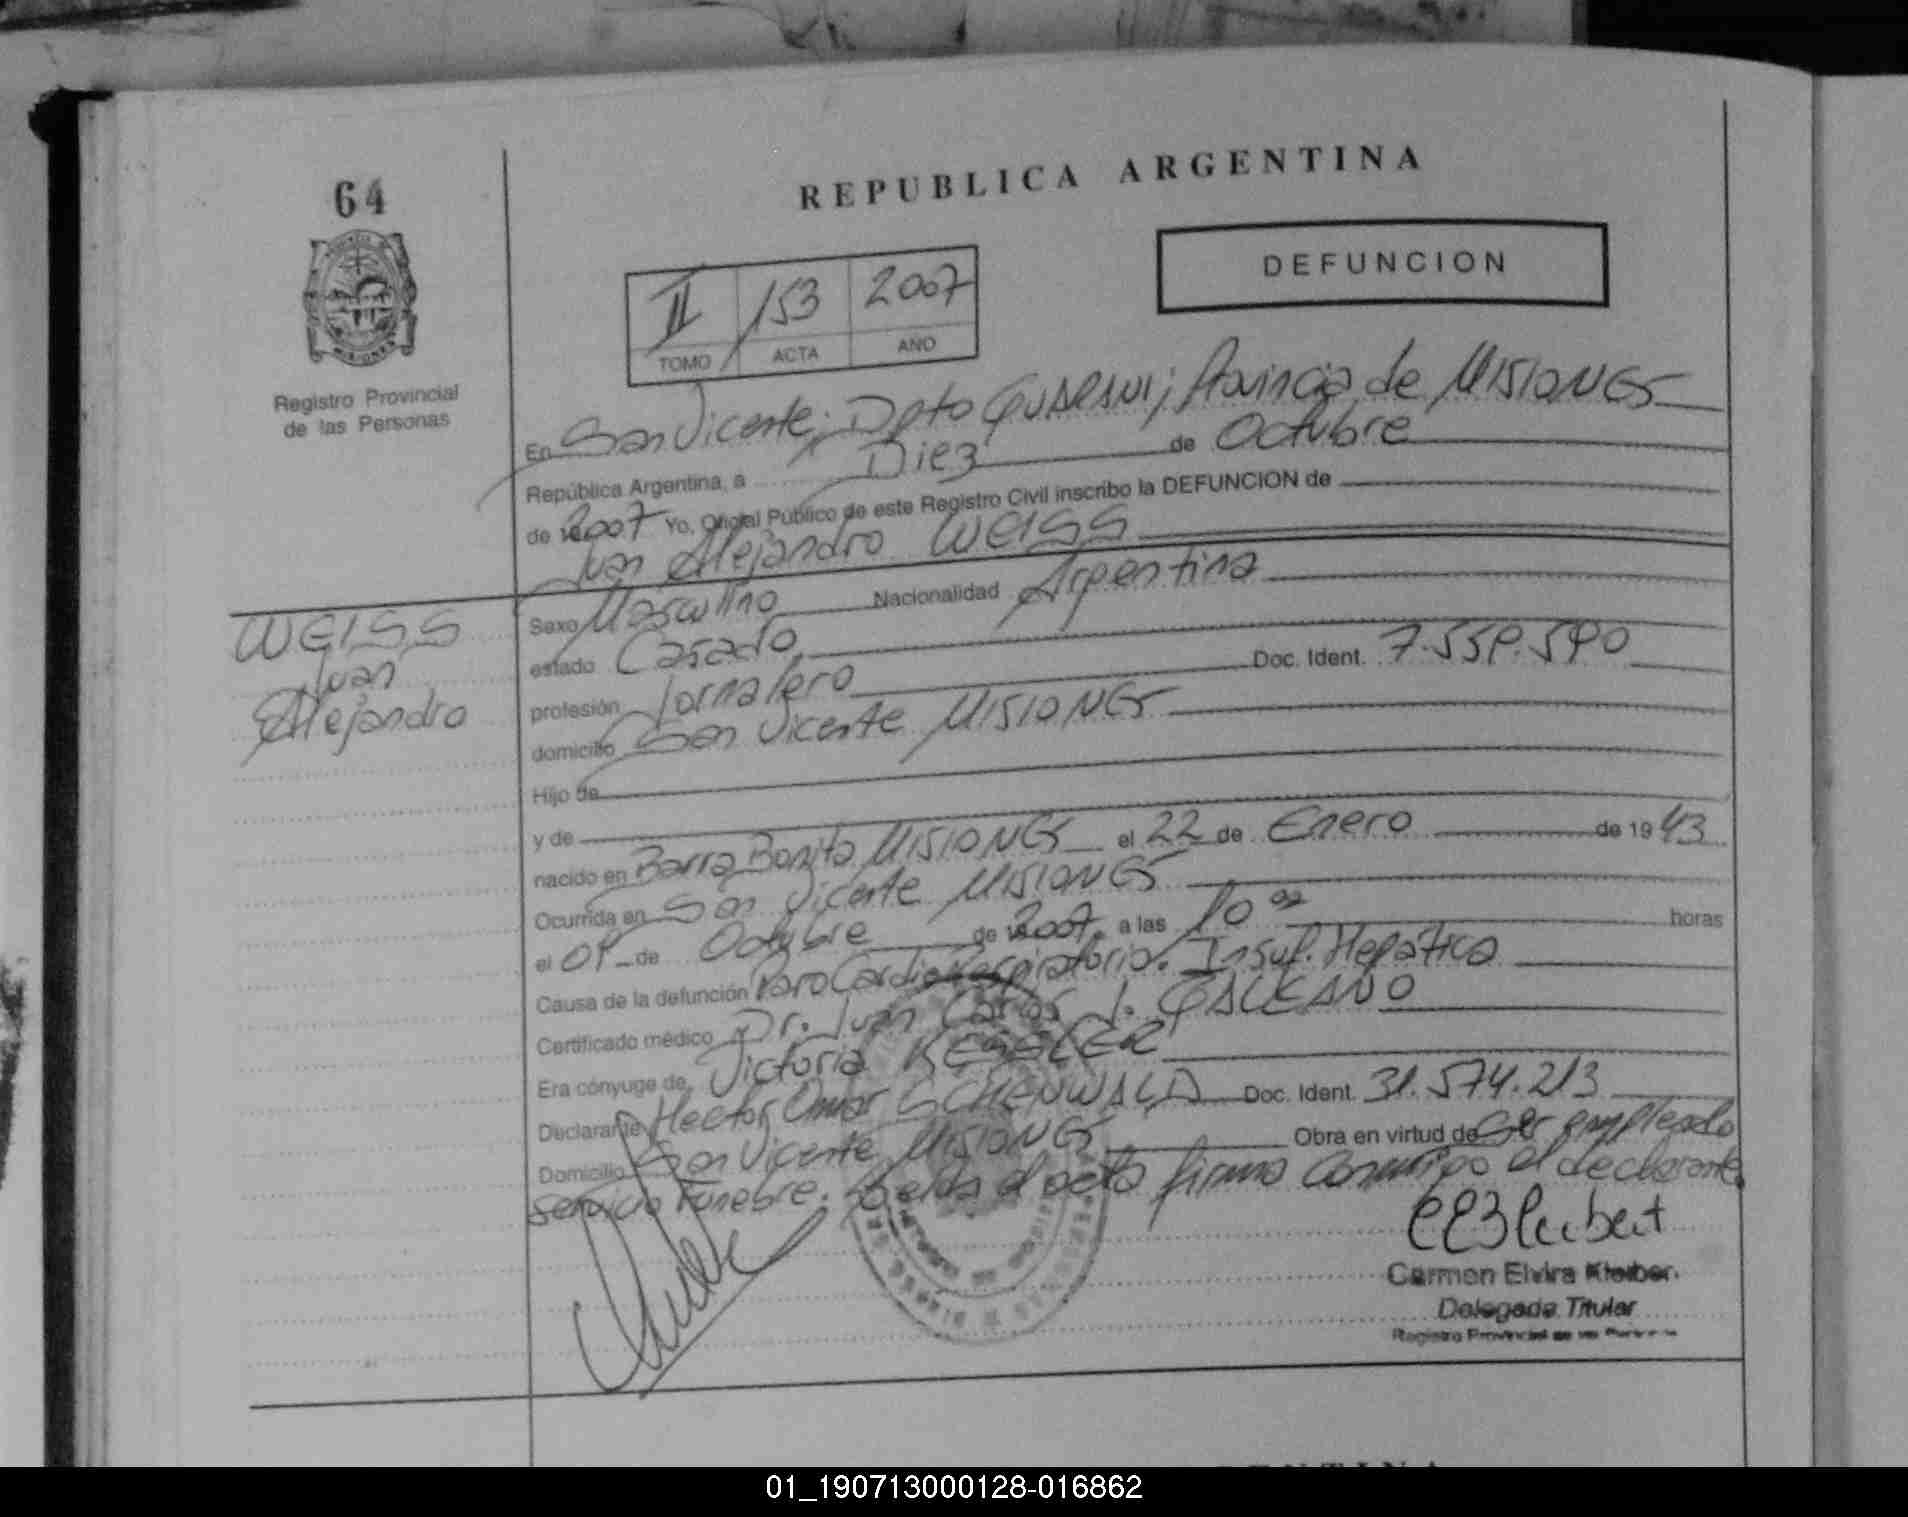 REPUBLICA ARGENTINA
64
DEFUNCION
II 153 2007
TOMO ACTA AÑO
Registro Provincial
de las Personas
En San Vicente; Dpto GUARANI; Provincia de MISIONES
República Argentina, a Diez de Octubre
de 2007 Yo, Oficial Público de este Registro Civil inscribo la DEFUNCION de
Juan Alejandro WEISS
WEISS
Juan
Alejandro
Sexo Masculino Nacionalidad Argentina
estado Casado
profesión Jornalero Doc. Ident. 7.559.590
domicilio San Vicente MISIONES
Hijo de
y de
nacido en Barra Bonita MISIONES el 22 de Enero de 1943
Ocurrida en San Vicente MISIONES
el 09 de Octubre de 2007 a las 10 horas
Causa de la defunción Paro Cardio Respiratorio. Insuf. Hepática
Certificado médico Dr. Juan Carlos J. GALEANO
Era cónyuge de Victoria KESSLER
Declarante Hector Omar SCHENWALD Doc. Ident. 31.574.213
Domicilio San Vicente MISIONES Obra en virtud de Ser empleado
servicio Funebre. Leida el acta firma conmigo el declarante
Carmen Elvira Kleiber
Delegada Titular
Registro Provincial de las Personas
01_190713000128-016862